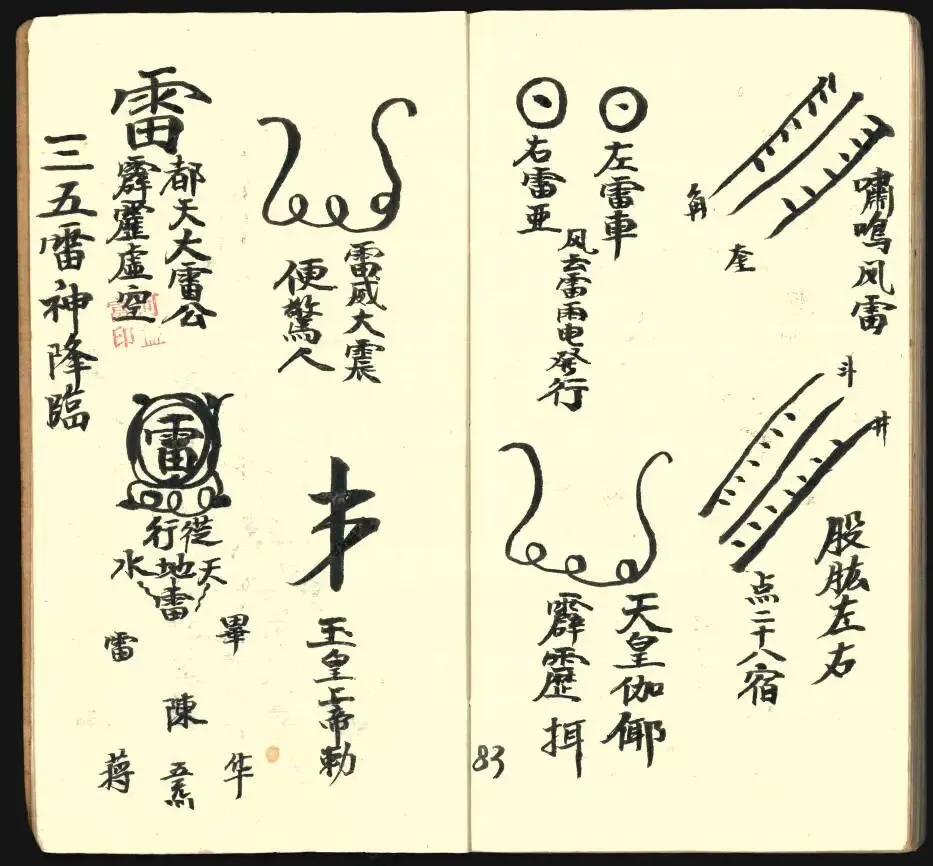 嘯鳴风雷
角
奎
左雷車
右雷亚
风云雷雨电發行
斗
井
股肱左右
点二十八宿
天皇伽倻
霹靂挕
83
雷威大震
便驚人
玉皇上帝勅
雷
都天大雷公
霹靂虛空
三五雷神降臨
雷
從天
行地雷
水
畢
雷
陳
华
五炁
蔣